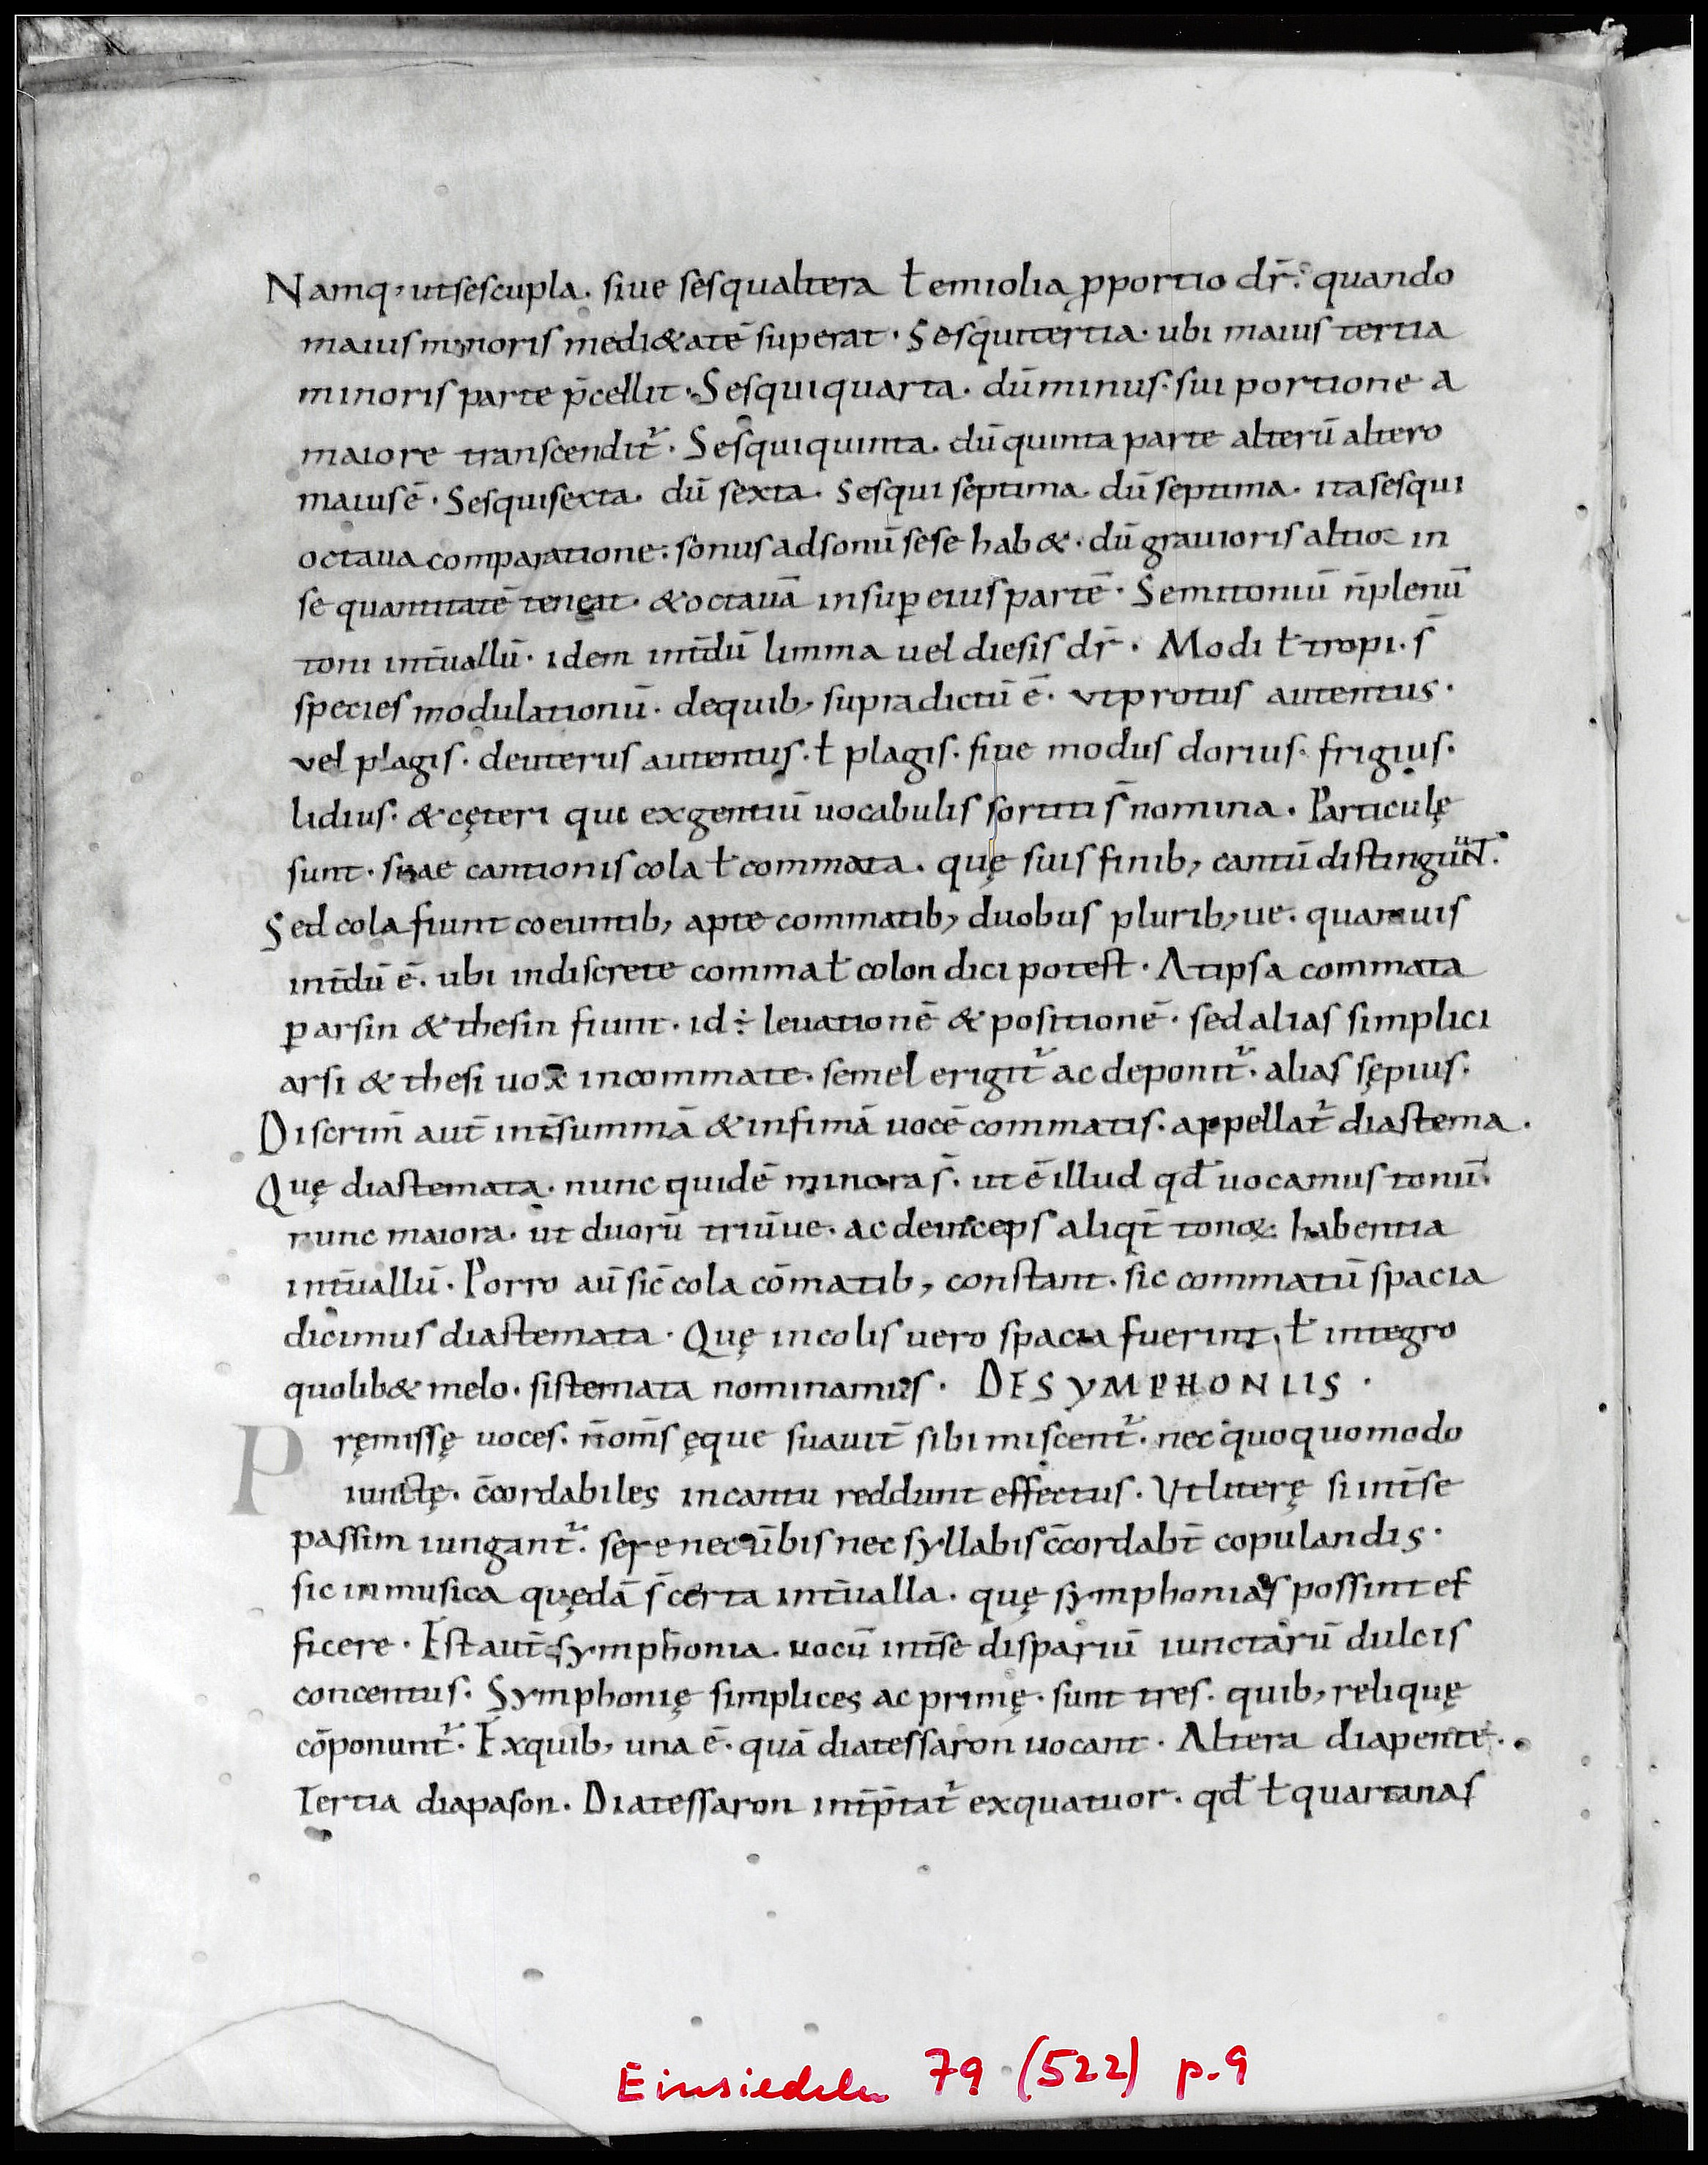 Namq, ut sescupla. siue sesqualtera ł emiolia p̱portio dr̄. quando
maius minoris medi&atē superat. Sesquitertia. ubi maius tertia
minoris parte p̄cellit. Sesquiquarta. dū minus. sui portione a
maiore transcendit᷑. Sesquiquinta. dū quinta parte alterū altero
maius ē. Sesquisexta. dū sexta. Sesqui septima. dū septima. ita sesqui
octaua comparatione. sonus ad sonū sese hab&. dū grauioris altior in
se quantitatē teneat. & octauā insuꝑ eius partē. Semitoniū n̄ plenū
toni int̄uallū. idem int̄dū limma uel diesis dr̄. Modi ł tropi. s̄
species modulationū. de quib, supradictū ē. ut protus autentus.
vel plagis. deuterus autentus. ł plagis. siue modus dorius. frigius.
lidius. & cęteri qui ex gentiū uocabulis sortiti s̄ nomina. Particulę
sunt. suae cantionis cola ł commata. quę suis finib, cantū distinguūt.
Sed cola fiunt coeuntib, apte commatib, duobus plurib, ue. quamuis
int̄dū ē. ubi indiscrete comma ł colon dici potest. At ipsa commata
ꝑ arsin & thesin fiunt. id ÷ leuationē & positionē. sed alias simplici
arsi & thesi uox in commate. semel erigit᷑ ac deponit᷑. alias sępius.
Discrim̄ aut̄ int̄ summā & infimā uocē commatis. appellat᷑ diastema.
Quę diastemata. nunc quidē minora s̄. ut ē illud qđ uocamus tonū.
nunc maiora. ut duorū triūue. ac deinceps aliqt̄ tonoꝝ habentia
int̄uallū. Porro aū sic̄ cola cōmatib, constant. sic commatū spacia
dicimus diastemata. Quę in colis uero spacia fuerint, ł integro
quolib& melo. sistemata nominamus. DE SYMPHONIIS.
Pręmissę uoces. n̄ om̄s ęque suauit̄ sibi miscent᷑. nec quoquo modo
iunctę. c̄cordabiles in cantu reddunt effectus. Ut literę si int̄ se
passim iungant᷑. sepe nec ūbis nec syllabis c̄cordabt̄ copulandis.
sic in musica quędā s̄ certa int̄ualla. quę symphonias possint ef
ficere. Est aut̄ symphonia. uocū int̄ se dispariū iunctarū dulcis
concentus. Symphonię simplices ac primę. sunt tres. quib, reliquę
cōponunt᷑. Ex quib, una ē. quā diatessaron uocant. Altera diapente.
Tertia diapason. Diatessaron int̄p̄tat᷑ ex quatuor. qđ ł quartanas
Einsiedeln 79 (522) p. 9